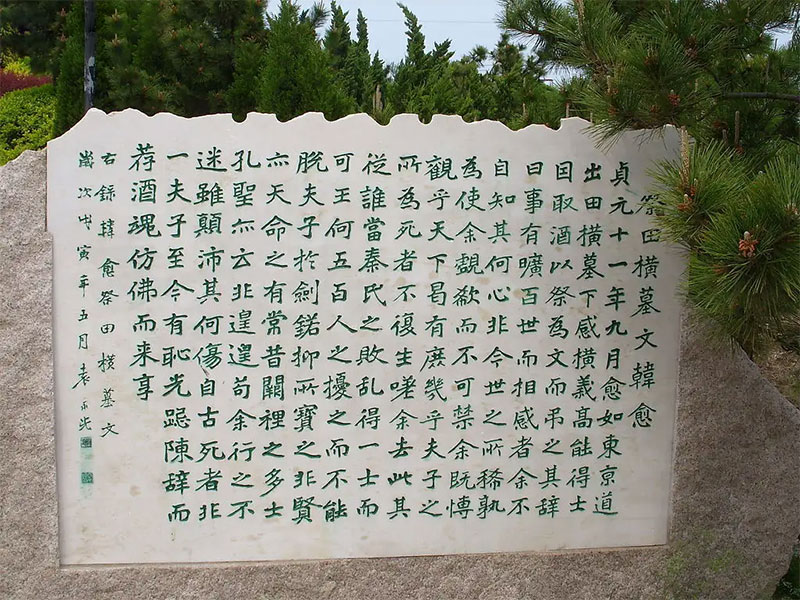 祭田橫墓文韓愈
貞元十一年九月愈如東京道
出田橫墓下感橫義高能得士
因取酒以祭為文而吊之其辞
曰事有曠百世而相感者余不
自知其何心非今世之所稀孰
為使余歔欷而不可禁余既博
觀乎天下曷有庶幾乎夫子之
所為死者不復生嗟余去此其
從誰當秦氏之敗乱得一士而
可王何五百人之擾之而不能
脫夫子於劍鋩抑所寶之非賢
亦天命之有常昔闕裡之多士
孔聖亦云非遑遑苟余行之不
迷雖顛沛其何傷自古死者非
一夫子至今有耿光跽陳辞而
荐酒魂仿佛而来享
右録韓愈祭田橫墓文
歲次戊寅年五月袁